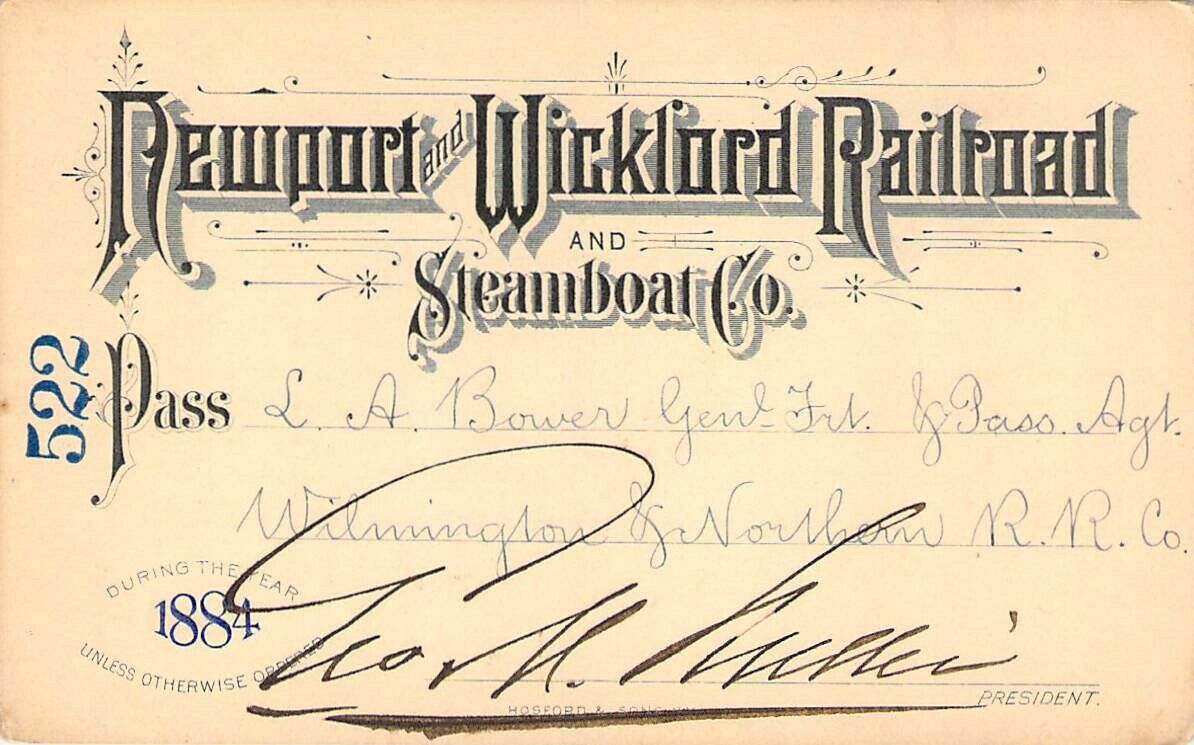 Newport and Wickford Railroad
AND
Steamboat Co.
522
Pass L. A. Bower Genl Frt. & Pass. Agt.
Wilmington & Northern R. R. Co.
DURING THE YEAR
1884
UNLESS OTHERWISE ORDERED
Geo M.
PRESIDENT.
HOSFORD & SONS